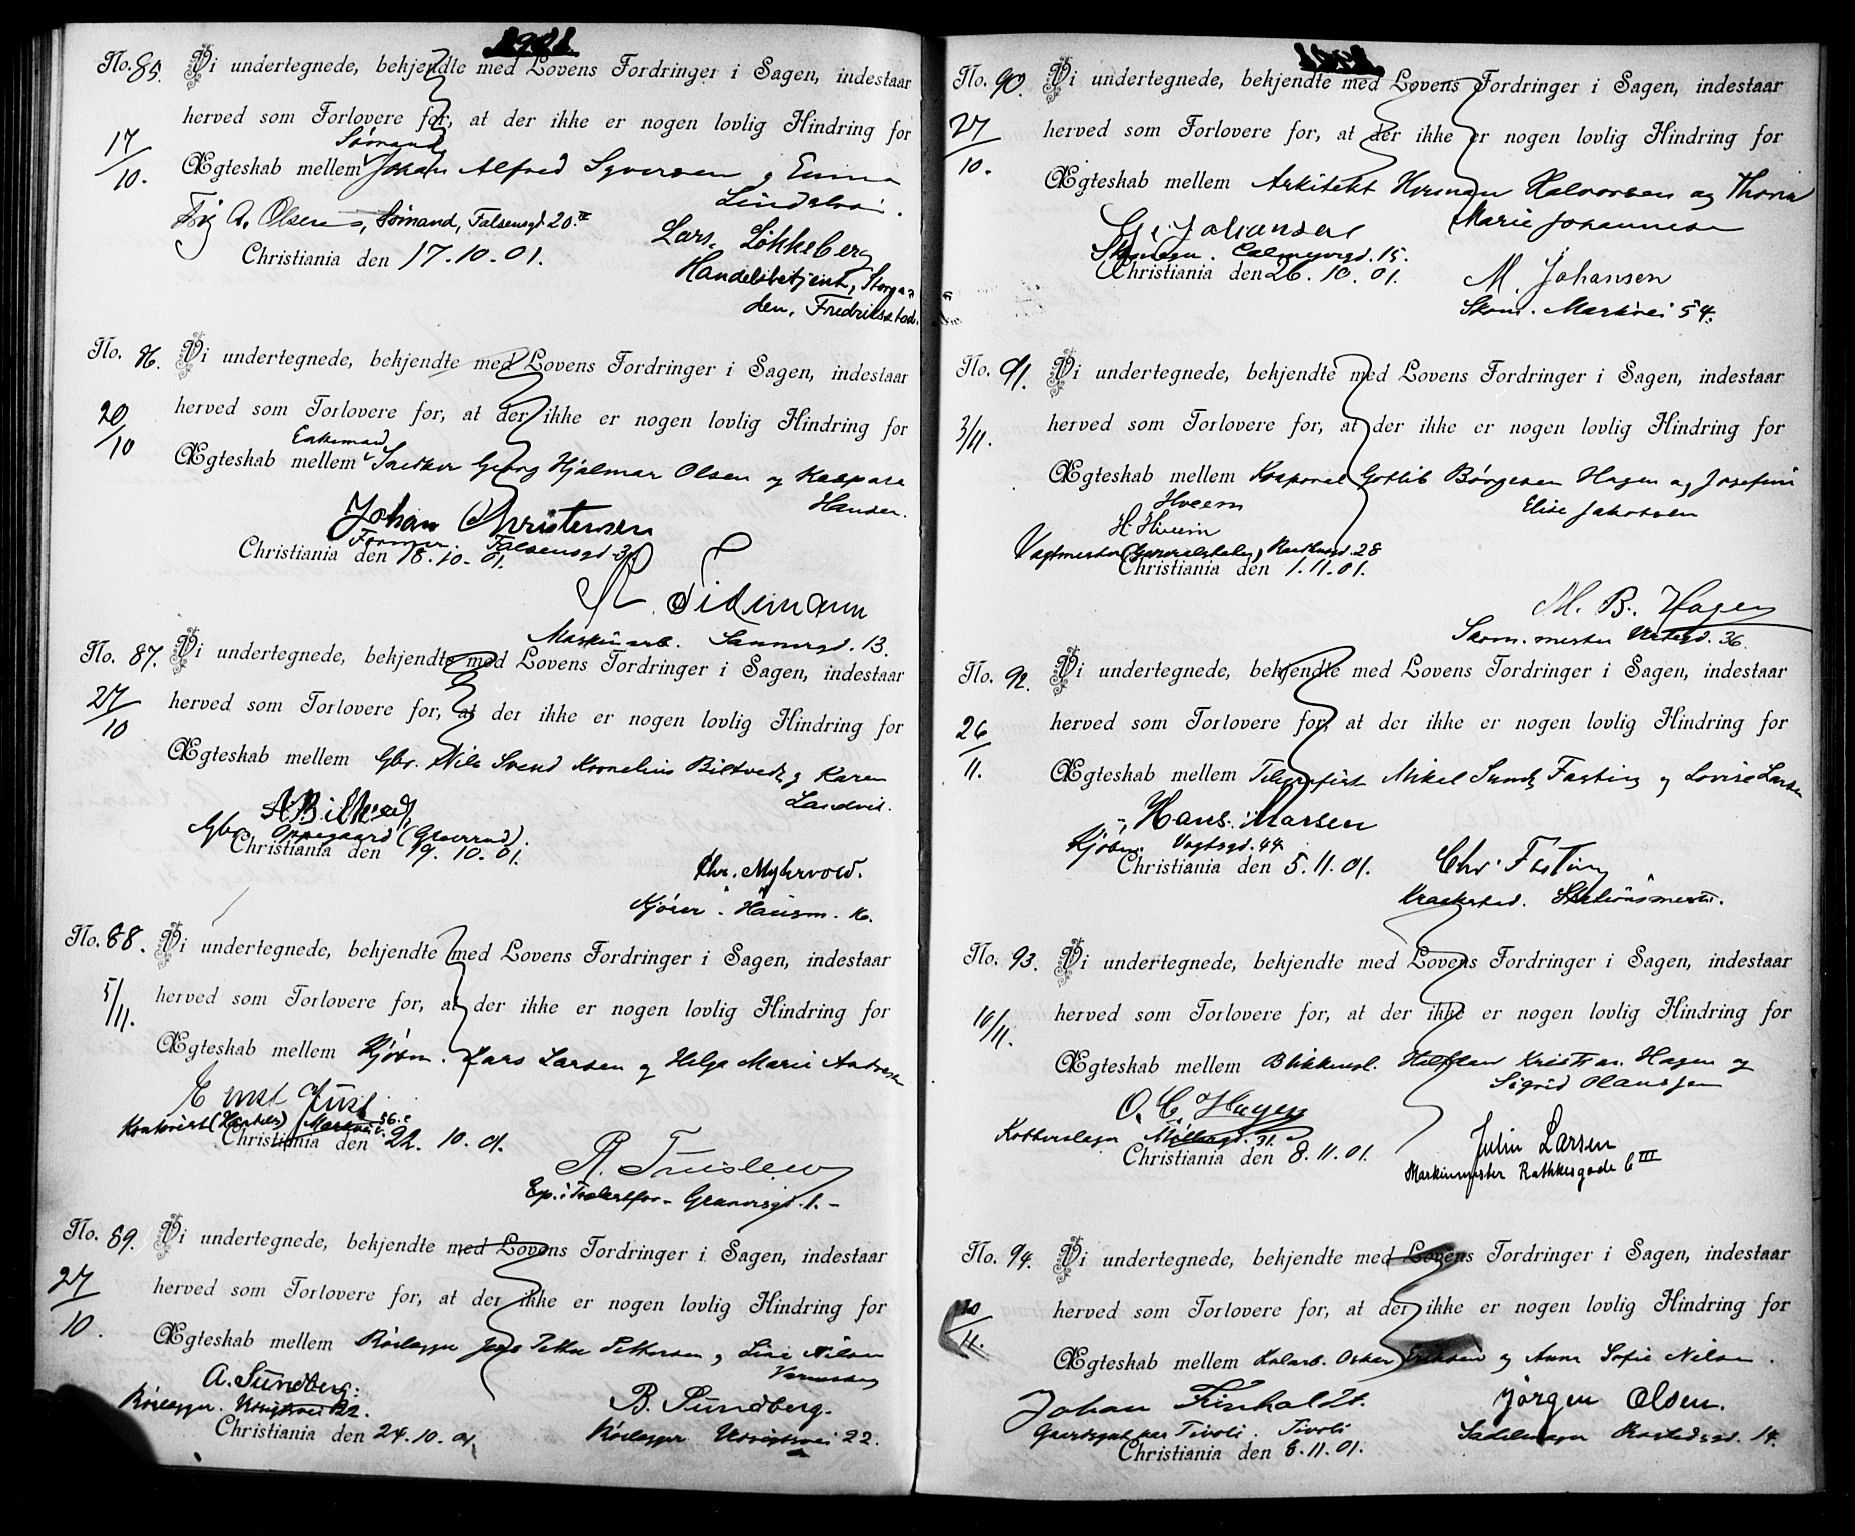 1901.
No. 85. Vi undertegnede, bekjendte med Lovens Fordringer i Sagen, indestaar
herved som Forlovere for, at der ikke er nogen lovlig Hindring for
17/10.
Sømand
Ægteskab mellem Johan Alfred Syversen og Emma
Olsen, Sømand, Falsensgd. 20 IV
Lars Løkkeberg
Christiania den 17.10.01.
Handelsbetjent, Storga-
den, Fredriksstad.
No. 86. Vi undertegnede, bekjendte med Lovens Fordringer i Sagen, indestaar
20/10
herved som Forlovere for, at der ikke er nogen lovlig Hindring for
Enkemand
Ægteskab mellem Snedker Georg Hjalmar Olsen og Kaspara
Hansen.
Johan Christensen
Former. Falsensgd.
Christiania den 18.10.01.
Tidemann
Maskinarb. Sannergd. 13.
No. 87. Vi undertegnede, bekjendte med Lovens Fordringer i Sagen, indestaar
27/10
herved som Forlovere for, at der ikke er nogen lovlig Hindring for
Ægteskab mellem Gbr. Nils Svend Kornelius Biltvedt og Karen
Landvik.
A Biltvedt,
Gbr. Oppegaard
Christiania den 19.10.01.
Chr. Myhrvold.
No. 88. Vi undertegnede, bekjendte med Lovens Fordringer i Sagen, indestaar
5/11.
herved som Forlovere for, at der ikke er nogen lovlig Hindring for
Ægteskab mellem Kjøbm. Lars Larsen og Helga Marie
Ernst Juul
Kontorist (Handels) Markvei 56.
Christiania den 22.10.01.
No. 89. Vi undertegnede, bekjendte med Lovens Fordringer i Sagen, indestaar
27/10.
herved som Forlovere for, at der ikke er nogen lovlig Hindring for
Ægteskab mellem Rørlægger Petter Pettersen og Line Nilsen
A. Sundberg.
Rørlægger. 22.
B. Sundberg.
Christiania den 24.10.01
Rørlægger 22.
1901.
No. 90. Vi undertegnede, bekjendte med Lovens Fordringer i Sagen, indestaar
27/10.
herved som Forlovere for, at der ikke er nogen lovlig Hindring for
Ægteskab mellem Arkitekt Herman Halvorsen og Thora
Marie Johannesen
Johansen
Calmeyergd. 15.
Christiania den 26.10.01.
M. Johansen
Skom. Markvei 54.
No. 91. Vi undertegnede, bekjendte med Lovens Fordringer i Sagen, indestaar
3/11.
herved som Forlovere for, at der ikke er nogen lovlig Hindring for
Ægteskab mellem Korporal Gotlib Børgesen Hagen og Josefine
Elise Jakobsen
Hveem
H. Hveem
Vagtmester Generalstaben, Raadhusgd. 28
Christiania den 1.11.01.
M. B. Hagen
Skom. mester 36.
No. 92. Vi undertegnede, bekjendte med Lovens Fordringer i Sagen, indestaar
26/11.
herved som Forlovere for, at der ikke er nogen lovlig Hindring for
Ægteskab mellem Telegrafist Mikel Fasting og Lovise Larsen
Hans Larsen
Kjøbm. Vogtsgd. 44.
Christiania den 5.11.01.
Chr. Fasting
Kraakstad. Stationsmester.
No. 93. Vi undertegnede, bekjendte med Lovens Fordringer i Sagen, indestaar
10/11.
herved som Forlovere for, at der ikke er nogen lovlig Hindring for
Ægteskab mellem Blikkensl. Halfdan Kristian Hagen og
Sigrid Olaussen
O. C. Hagen
Kobberslager Møllergd. 31.
Christiania den 8.11.01.
Julin Larsen
Maskinmester Rathkesgade 6 III
No. 94. Vi undertegnede, bekjendte med Lovens Fordringer i Sagen, indestaar
10/11.
herved som Forlovere for, at der ikke er nogen lovlig Hindring for
Ægteskab mellem Oskar Eriksen og Anna Sofie Nilsen.
Johan
Tivoli. Tivoli
Jørgen Olsen.
Sadelmager 14.
Christiania den 8.11.01.